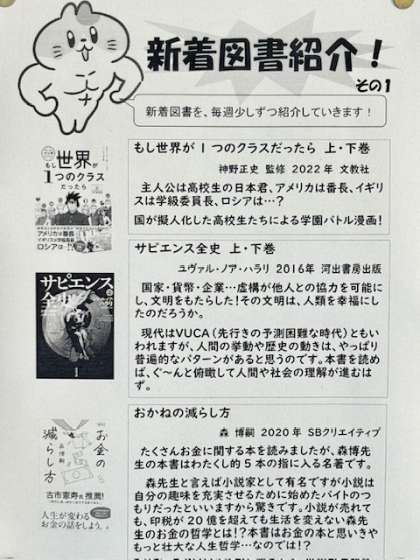 新着図書紹介！
その1
新着図書を、毎週少しずつ紹介していきます！
もし世界が
1つのクラス
だったら
アメリカは番長
イギリスは学級委員長
ロシアは…！
もし世界が１つのクラスだったら 上・下巻
神野正史 監修 2022年 文教社
主人公は高校生の日本君、アメリカは番長、イギリ
スは学級委員長、ロシアは…？
国が擬人化した高校生たちによる学園バトル漫画！
サピエンス
全史
サピエンス全史 上・下巻
ユヴァル・ノア・ハラリ 2016年 河出書房出版
国家・貨幣・企業…虚構が他人との協力を可能に
し、文明をもたらした！その文明は、人類を幸福にし
たのだろうか。
現代はVUCA（先行きの予測困難な時代）ともい
われますが、人間の挙動や歴史の動きは、やっぱり
普遍的なパターンがあると思うのです。本書を読め
ば、ぐ〜んと俯瞰して人間や社会の理解が進むは
ず。
お金の
減らし方
森博嗣
古市憲寿氏推薦！
人生が変わる
お金の話をしよう。
おかねの減らし方
森 博嗣 2020年 SBクリエイティブ
たくさんお金に関する本を読みましたが、森博先
生の本書はわたくし的５本の指に入る名著です。
森先生と言えば小説家として有名ですが小説は
自分の趣味を充実させるために始めたバイトのつ
もりだったといいますから驚きです。小説が売れて
も、印税が 20 億を超えても生活を変えない森先
生のお金の哲学とは！？本書はお金の本と思いきや
もっと壮大な人生哲学…なのでは！？